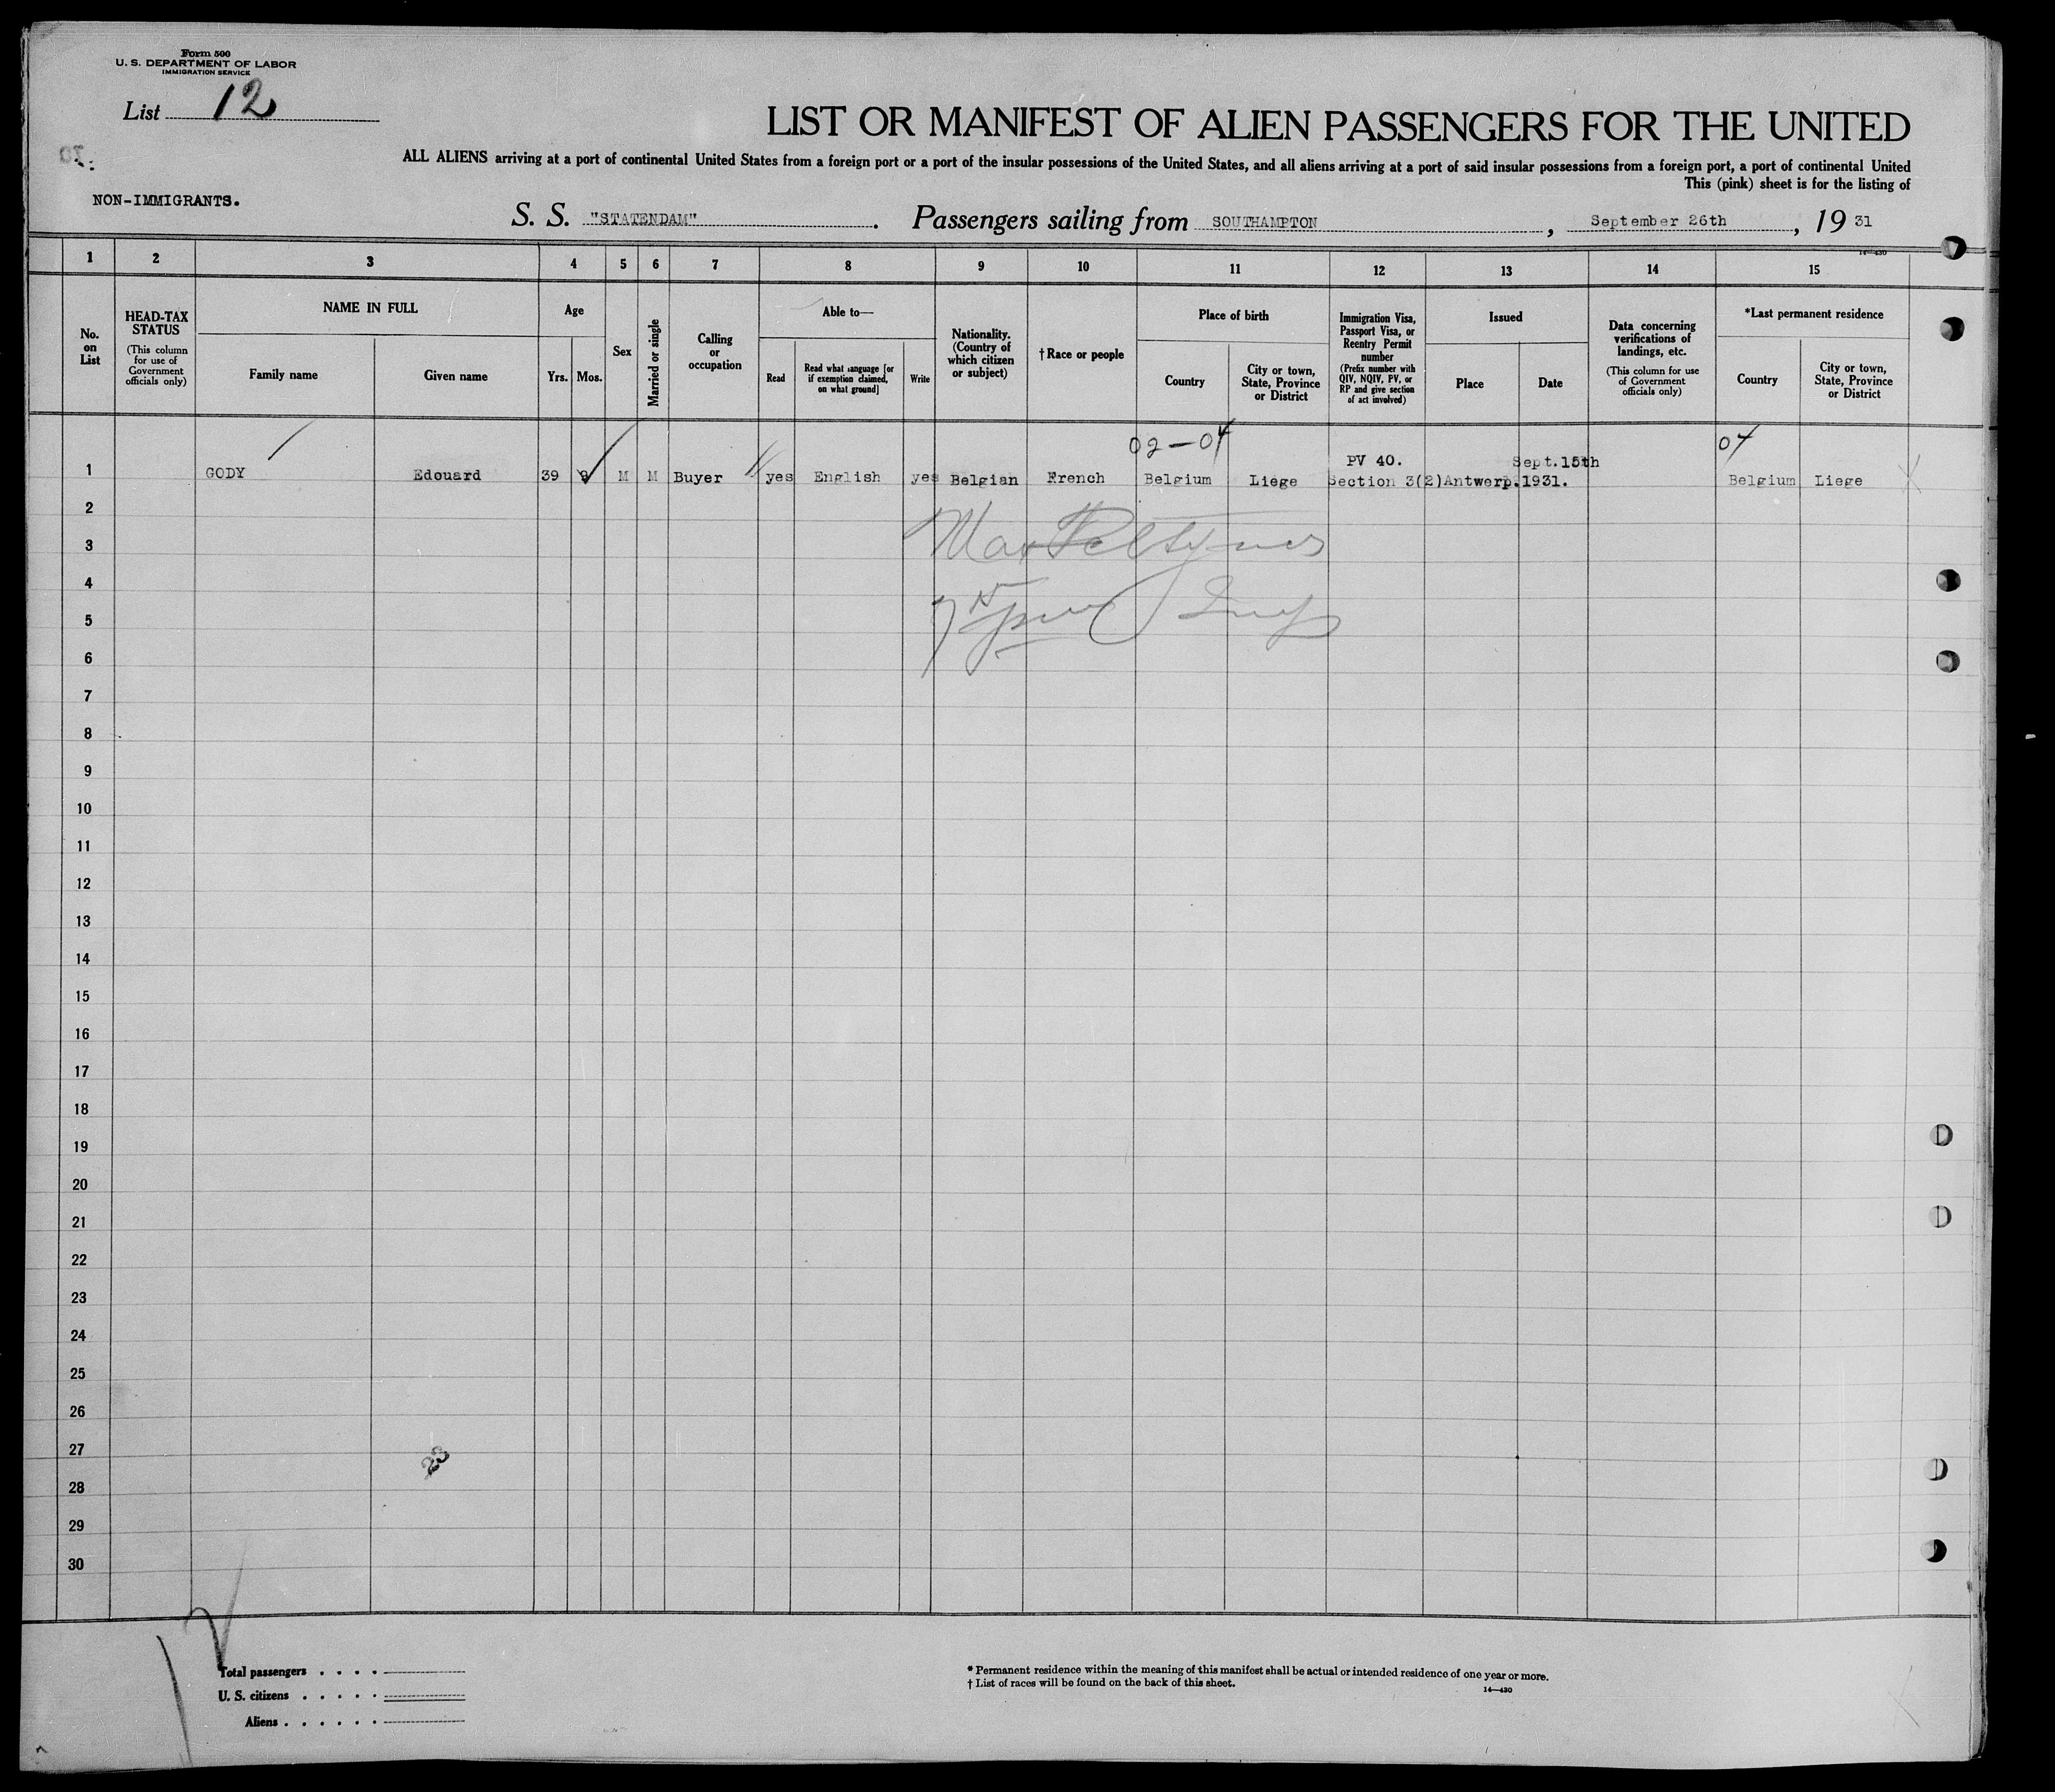 Form 500
U. S. DEPARTMENT OF LABOR
IMMIGRATION SERVICE
List 12
LIST OR MANIFEST OF ALIEN PASSENGERS FOR THE UNITED
ALL ALIENS arriving at a port of continental United States from a foreign port or a port of the insular possessions of the United States, and all aliens arriving at a port of said insular possessions from a foreign port, a port of continental United
This (pink) sheet is for the listing of
NON-IMMIGRANTS.
S. S. "STATENDAM". Passengers sailing from SOUTHAMPTON, September 26th, 1931
14—430
1 2 3 4 5 6 7 8 9 10 11 12 13 14 15
No. on List
HEAD-TAX STATUS
(This column for use of Government officials only)
NAME IN FULL
Family name
Given name
Age
Yrs. Mos.
Sex
Married or single
Calling or occupation
Able to—
Read
Read what language [or if exemption claimed, on what ground]
Write
Nationality. (Country of which citizen or subject)
†Race or people
Place of birth
Country
City or town, State, Province or District
Immigration Visa, Passport Visa, or Reentry Permit number
(Prefix number with QIV, NQIV, PV, or RP and give section of act involved)
Issued
Place
Date
Data concerning verifications of landings, etc.
(This column for use of Government officials only)
*Last permanent residence
Country
City or town, State, Province or District
02-04
04
PV 40. Sept.15th
1 GODY Edouard 39 M M Buyer yes English yes Belgian French Belgium Liege Section 3(2) Antwerp. 1931. Belgium Liege
2
3
4
5
6
7
8
9
10
11
12
13
14
15
16
17
18
19
20
21
22
23
24
25
26
27
28
29
30
Total passengers . . . .
U. S. citizens . . . . .
Aliens . . . . . .
* Permanent residence within the meaning of this manifest shall be actual or intended residence of one year or more.
† List of races will be found on the back of this sheet.
14—430